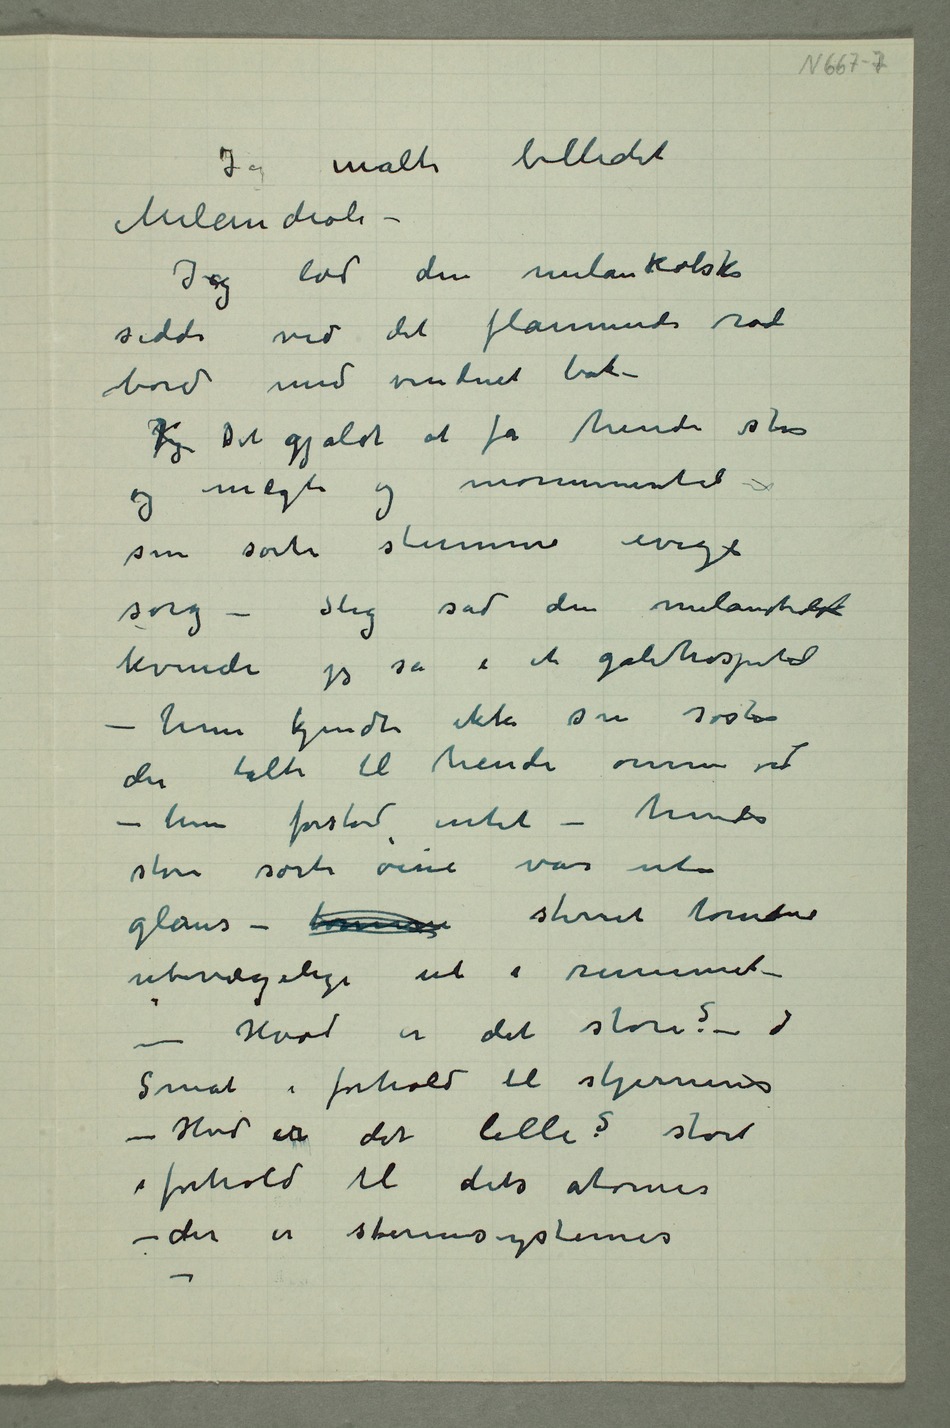 N 667-7
Jeg malte billedet
Melancholi –
Jeg lod den melankolske
sidde ved det flammende rød
bord med vinduet bak –
Det gjaldt at få hende stor
og mægti og monumental –
sin sorte stumme evige
sorg – Slig sad den melancholsk
kvinde jeg så i et galehospital
– hun kjendte ikke sin søster
der talte til hende ømme ord
– hun forstod intet – hendes
store sorte öine var uten
glans – stirret tomme
ubevægelige ut i rummet –
– Hvad er det store? –
Småt i forhold til stjernernes
– Hvad er det lille? stort
i forhold til dets atomer
– der er sternesystemer
–